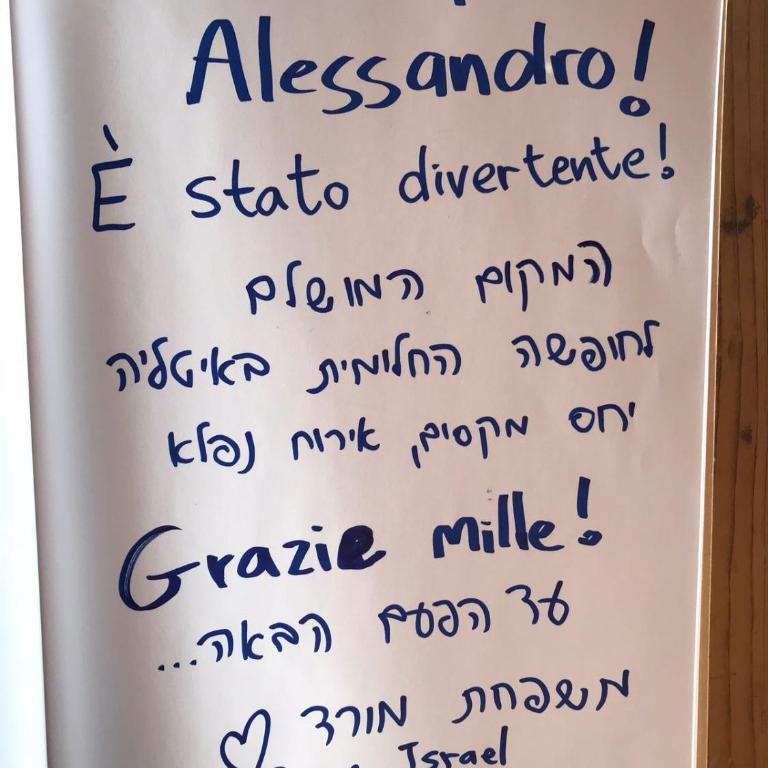 Alessandro!
È stato divertente!
המקום המושלם
לחופשה החלומית באיטליה
יחס מקסים, אירוח נפלא
Grazie mille!
עד הפעם הבאה...
משפחת מורד ♡
Israel